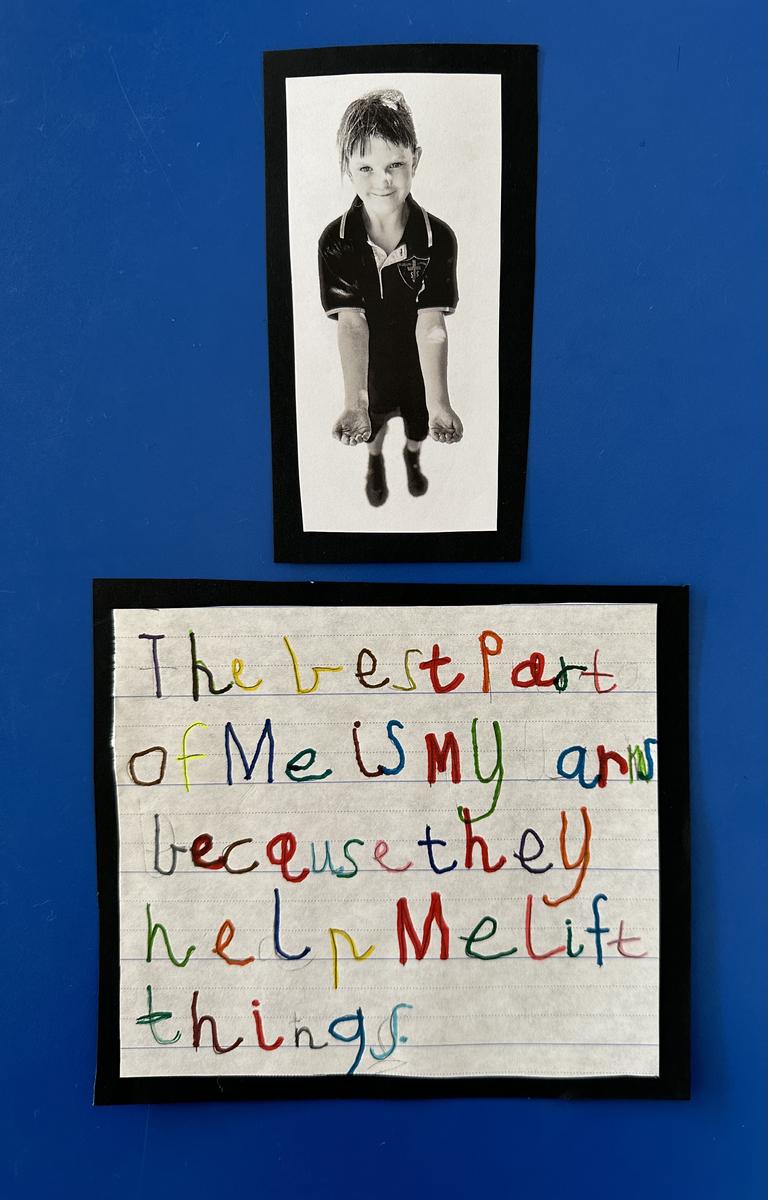 The best Part
of Me is my arms
because they
help Me Lift
things.